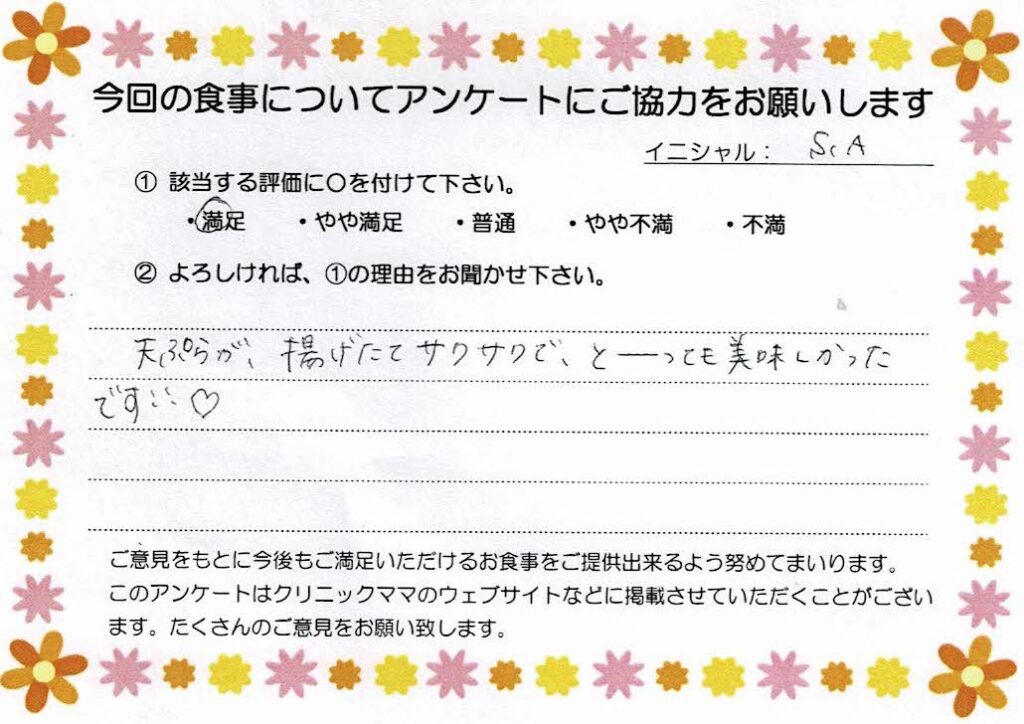 今回の食事についてアンケートにご協力をお願いします
イニシャル： S,A
① 該当する評価に〇を付けて下さい。
・満足 ・やや満足 ・普通 ・やや不満 ・不満
② よろしければ、①の理由をお聞かせ下さい。
天ぷらが、揚げたてサクサクで、と――っても美味しかった
です!! ♡
ご意見をもとに今後もご満足いただけるお食事をご提供出来るよう努めてまいります。
このアンケートはクリニックママのウェブサイトなどに掲載させていただくことがござい
ます。たくさんのご意見をお願い致します。